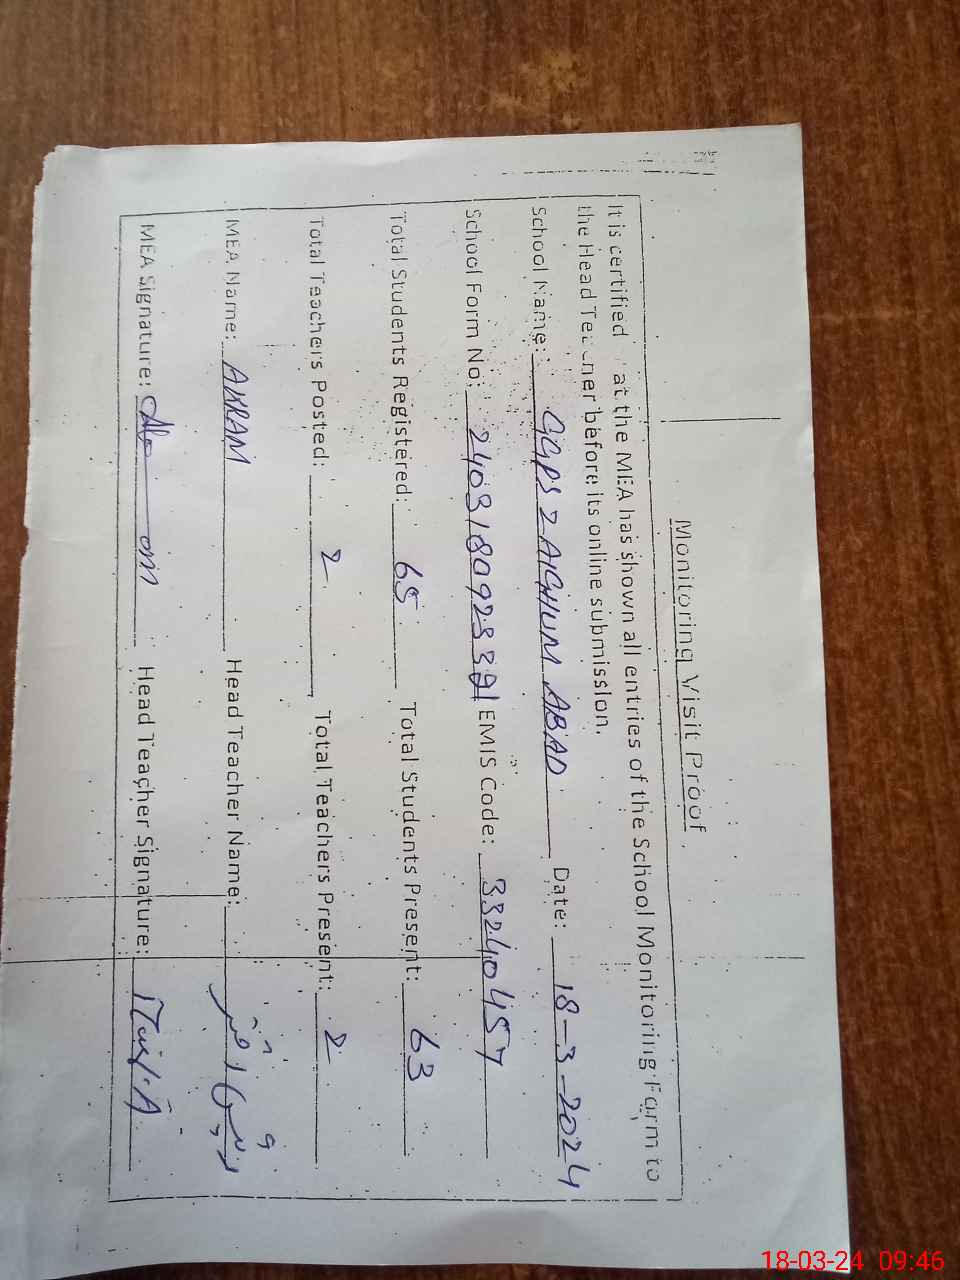 Monitoring Visit Proof
It is certified at the MEA has shown all entries of the School Monitoring Form to
the Head Teacher before its online submission.
School Name: GGPS ZAIGHUM ABAD Date: 18-3-2024
School Form No: EMIS Code: 33240457
Total Students Registered: 65 Total Students Present: 63
Total Teachers Posted: 2 Total Teachers Present: 2
MEA Name: AKRAM Head Teacher Name:
MEA Signature: Head Teacher Signature:
18-03-24 09:46